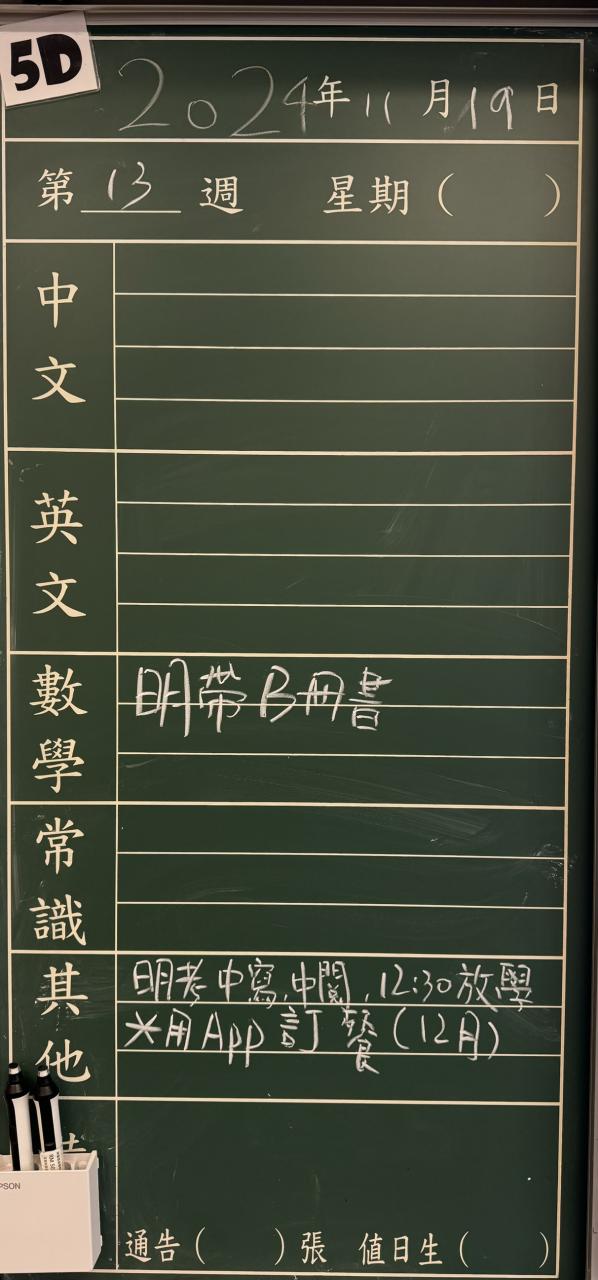 5D
2024年11月19日
第13週 星期( )
中文
英文
數學
明帶B冊書
常識
其他
明考中寫,中閱,12:30放學
*用App訂餐(12月)
PSON
通告( )張 值日生( )